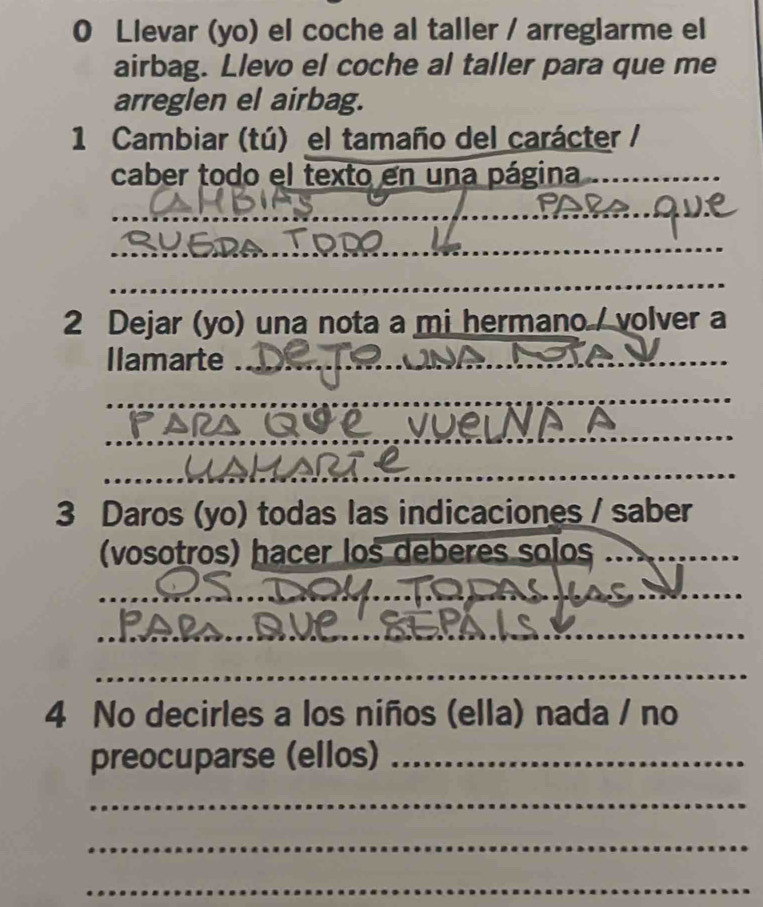 0 Llevar (yo) el coche al taller / arreglarme el
airbag. Llevo el coche al taller para que me
arreglen el airbag.
1 Cambiar (tú) el tamaño del carácter /
caber todo el texto en una página ..............
CAMBIAS PARA QUE
QUEPA TODO
2 Dejar (yo) una nota a mi hermano / volver a
llamarte DEJO UNA NOTA
PARA QUE VUELVA A
LLAMARTE
3 Daros (yo) todas las indicaciones / saber
(vosotros) hacer los deberes solos ..............
OS DOY TODAS LAS
PARA QUE SEPÁIS
4 No decirles a los niños (ella) nada / no
preocuparse (ellos) ..............